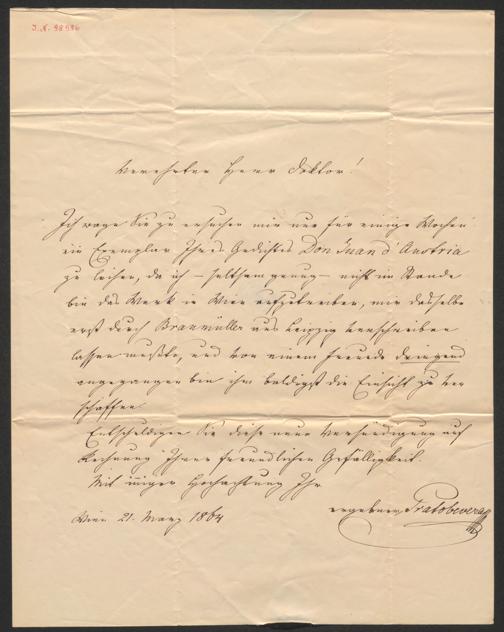 J. N. 98586
Verehrter Herr Doktor!
Ich wage Sie zu ersuchen mir nur für einige Wochen
ein Exemplar Ihres Gedichtes Don Juan d'Austria
zu leihen, da ich – seltsam genug – nicht im Stande
bin das Werk in Wien aufzutreiben, mir dasselbe
erst durch Braumüller aus Leipzig verschreiben
lassen müßte, und von einem Freunde dringend
angegangen bin ihm baldigst die Einsicht zu ver
schaffen.
Entschuldigen Sie diese neue Versündigung auf
Rechnung Ihrer freundlichen Gefälligkeit.
Mit inniger Hochachtung Ihr
ergebener Pratobevera
Wien 21. März 1864